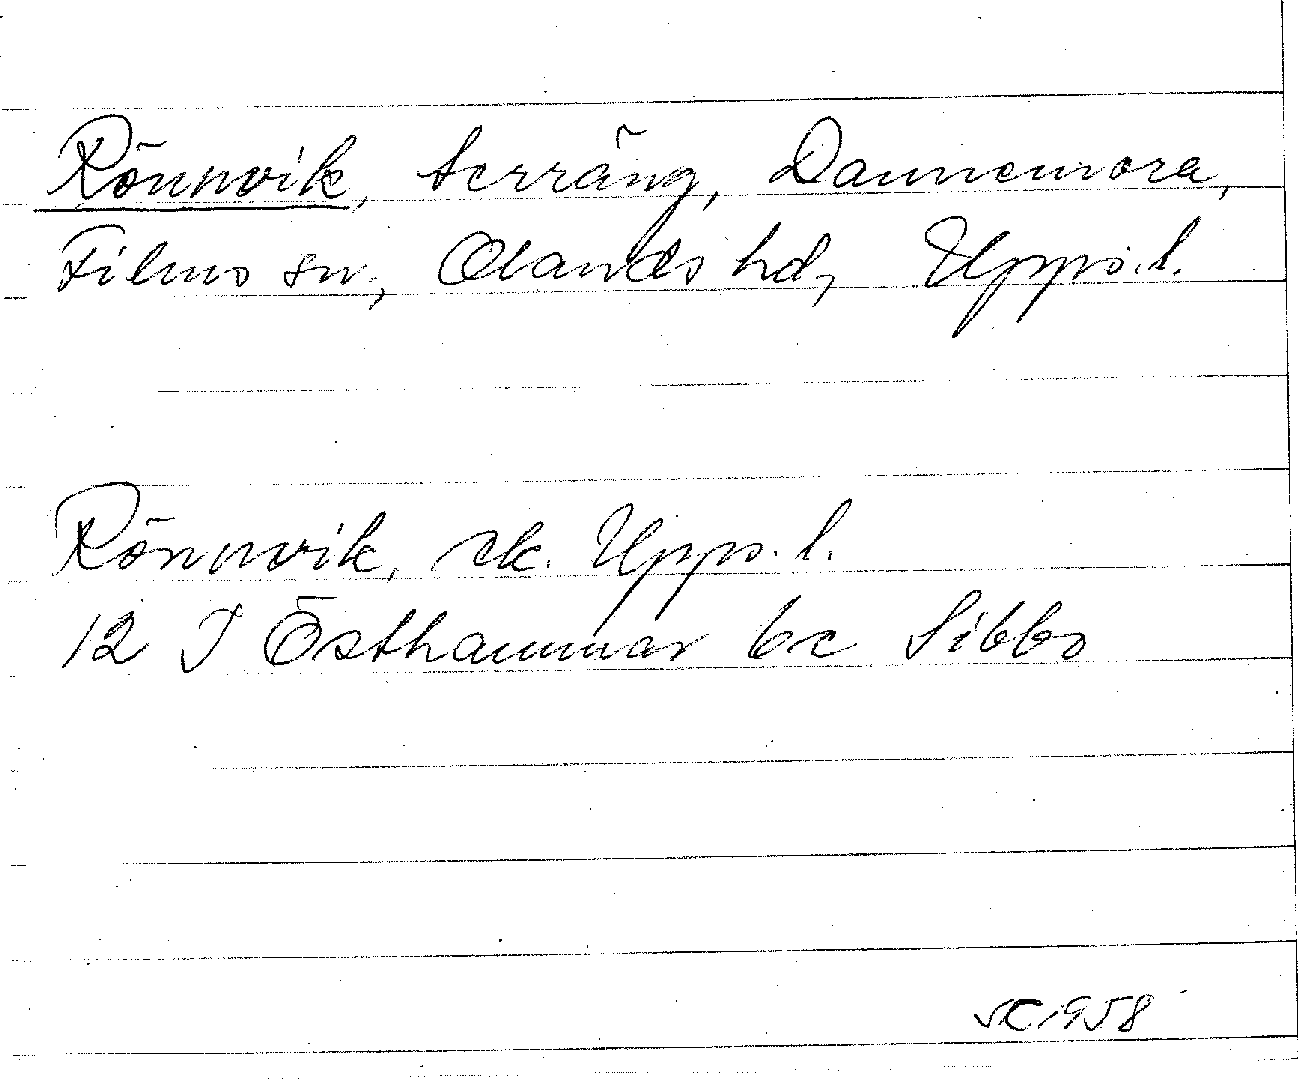 Rönnvik, terräng, Dannemora,
Films sn, Olands hd, Upps. l.
Rönnvik, ek. Upps. l.
12 I Östhammar 6c Sibbo
1958